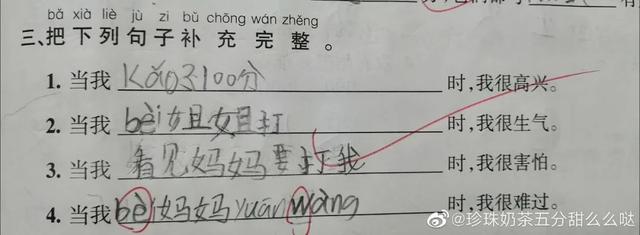 bǎ xià liè jù zi bǔ chōng wán zhěng
三、把下列句子补充完整。
1. 当我 Kǎo了100分 时,我很高兴。
2. 当我 bèi姐姐打 时,我很生气。
3. 当我 看见妈妈要打我 时,我很害怕。
4. 当我 bèi妈妈yuānwàng 时,我很难过。
@珍珠奶茶五分甜么么哒